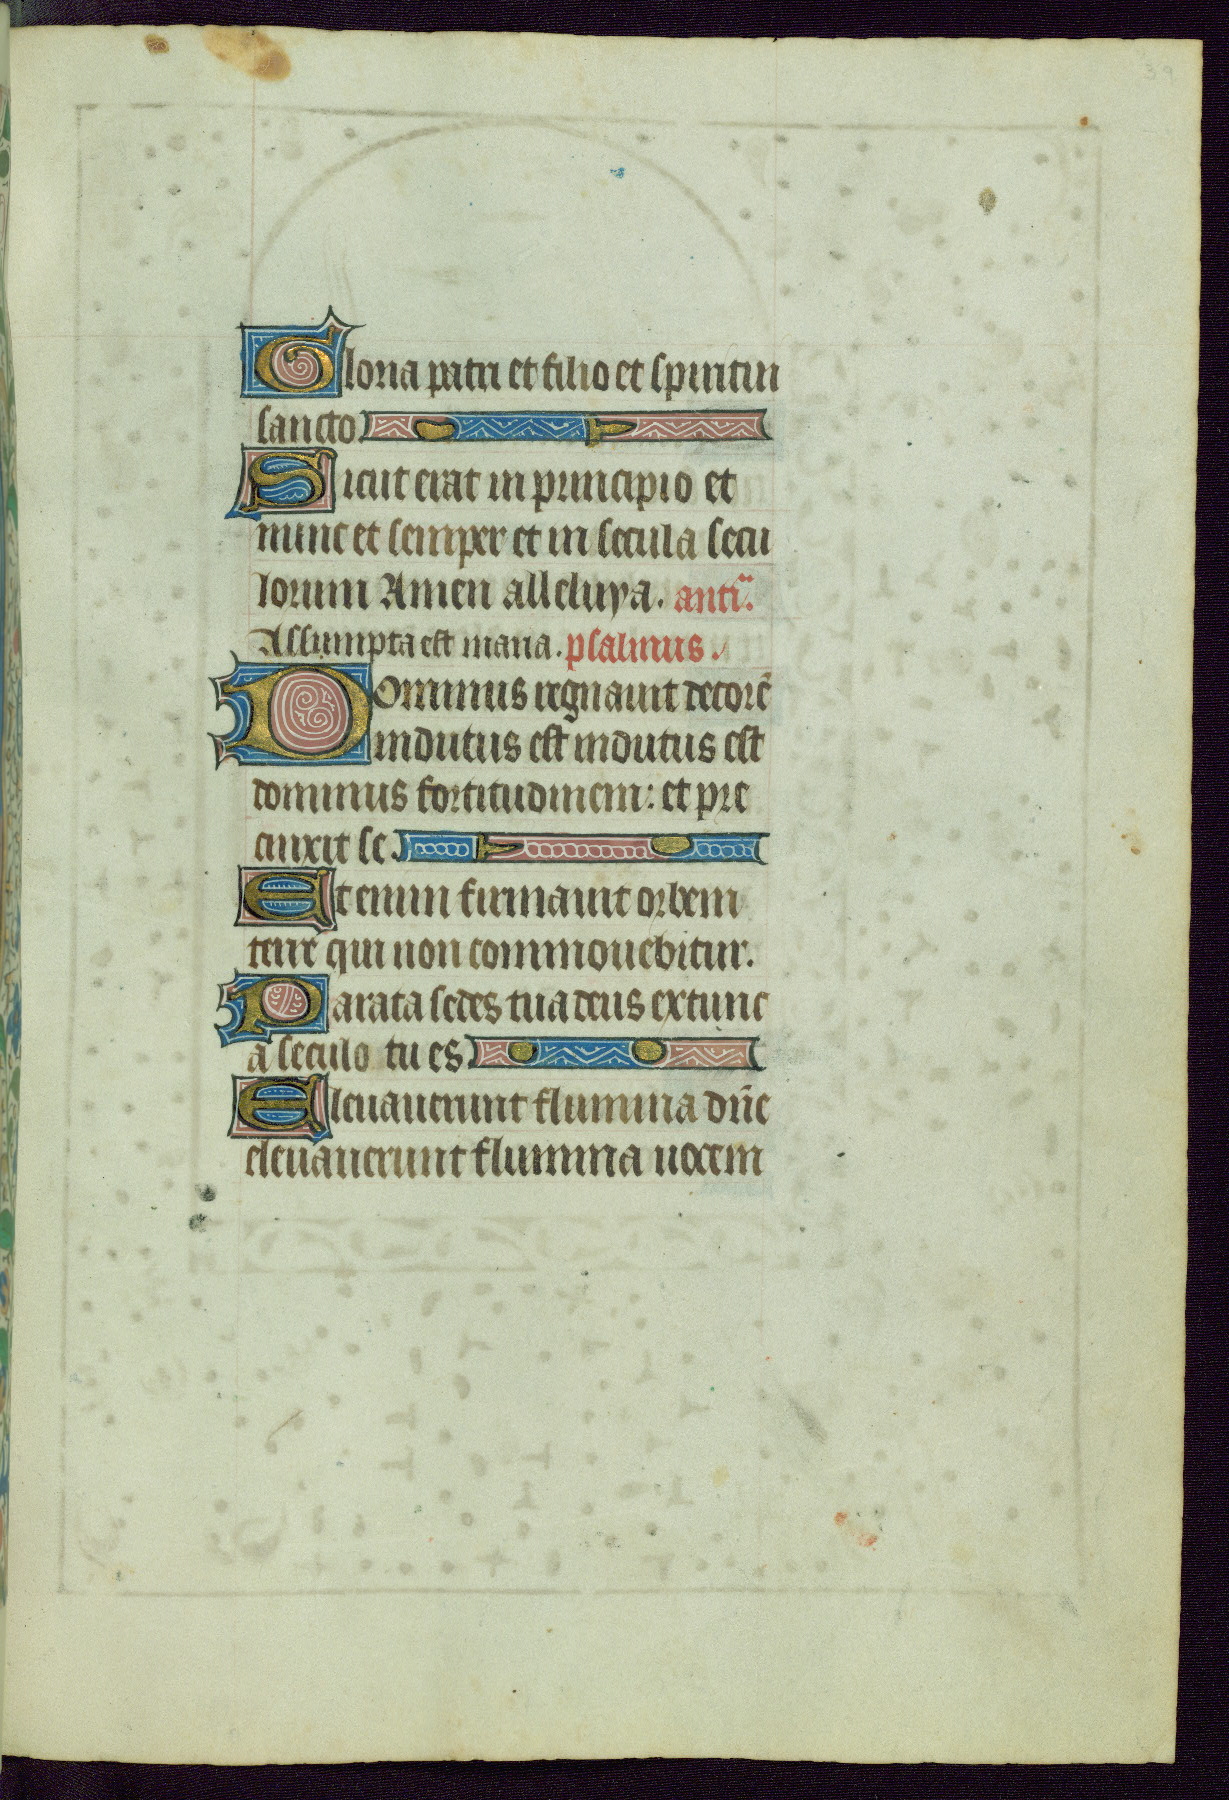 39
Gloria patri et filio et spiritui
sancto
Sicut erat in principio et
nunc et semper et in secula secu
lorum Amen alleluya. anti.
Assumpta est maria. psalmus.
Dominus regnauit decorē
indutus est indutus est
dominus fortitudinem: et pre
cinxit se.
Et enim firmauit orbem
terre qui non commouebitur.
Parata sedes tua deus extunc
a seculo tu es.
Eleuauerunt flumina dn̄e
eleuauerunt flumina uocem